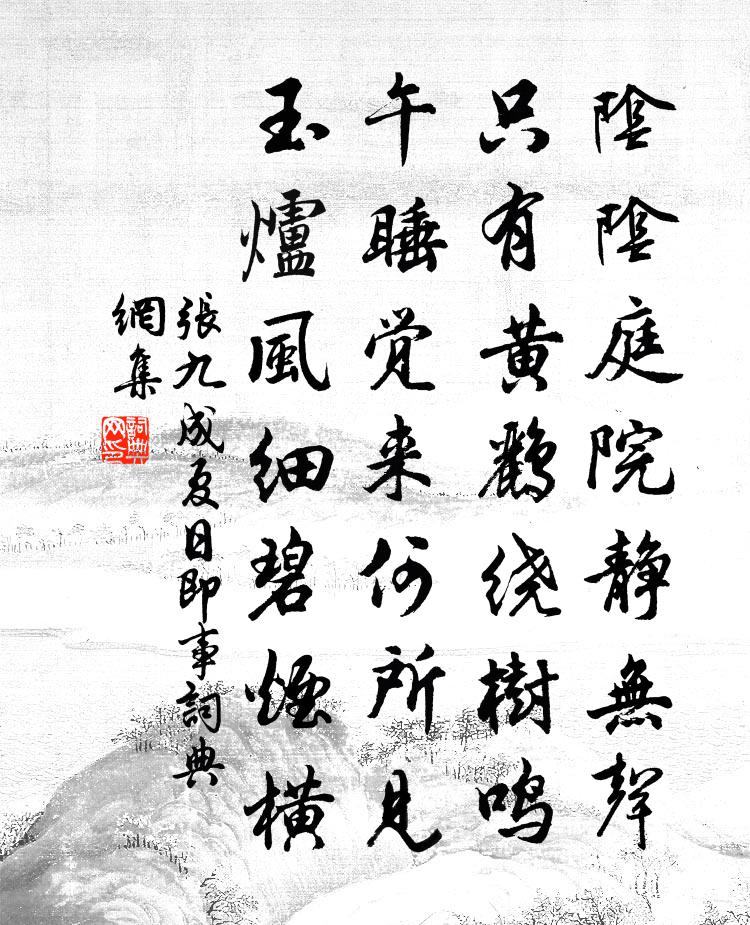 陰陰庭院静無聲
只有黄鸝绕樹鳴
午睡觉来何所見
玉爐風細碧煙横
張九成夏日即事詞典
網集
詞典
网印